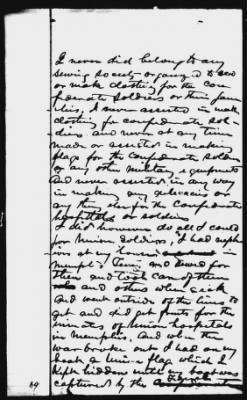 I never did belong to any
Sewing Society organized to sew
or make clothes for the Con-
federate Soldiers or their fami-
lies, I never assisted in making
clothing for Confederate Sol-
diers and never at any time
made or assisted in making
flags for the Confederate Soldiers
or any other military equipments
And never assisted in any way
in making or
any thing else for the Confederate
hospitals or soldiers
I did however do all I could
for Union Soldiers, I had
at my house
Memphis Tenn and for
them and took care of them
and others when sick
and went outside of the lines to
get and did get fruits for the
inmates of Union hospitals
in Memphis. And when the
war broke out I had on my
boat a Union flag which I
kept hidden until my boat was
captured by the
19